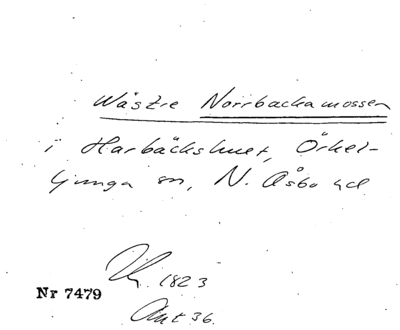 Wästre Norrbackamossen
i Harbäckshult, Örkel-
ljunga sn, N. Åsbo hd
1823
Nr 7479
Akt 36.